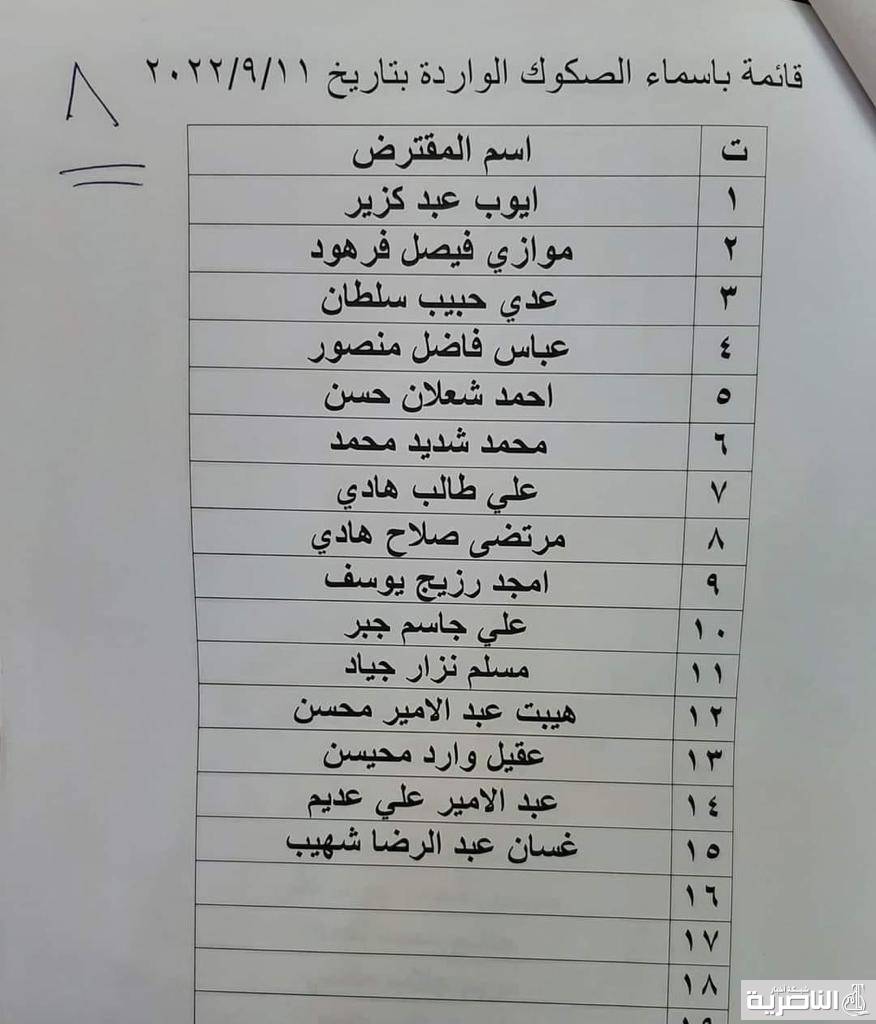 قائمة باسماء الصكوك الواردة بتاريخ ٢٠٢٢/٩/١١
٨
ت اسم المقترض
١ ايوب عبد كزير
٢ موازي فيصل فرهود
٣ عدي حبيب سلطان
٤ عباس فاضل منصور
٥ احمد شعلان حسن
٦ محمد شديد محمد
٧ علي طالب هادي
٨ مرتضى صلاح هادي
٩ امجد رزيج يوسف
١٠ علي جاسم جبر
١١ مسلم نزار جياد
١٢ هيبت عبد الامير محسن
١٣ عقيل وارد محيسن
١٤ عبد الامير علي عديم
١٥ غسان عبد الرضا شهيب
١٦
١٧
١٨
١٩
شبكة أخبار
الناصرية